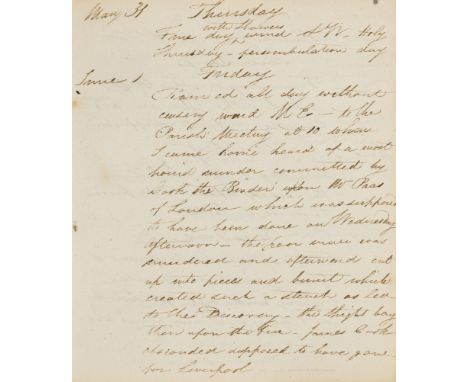 May 31 Thursday
with showers
Fine day wind S W - Holy
Thursday - perambulation day
June 1 Friday
Rained all day without
ceasing wind N E - to the
Parish Meeting at 10 when
I came home heard of a most
horrid murder committed by
Cook the Binder upon Mr Paas
of London which was supposed
to have been done on Wednesday
afternoon - the poor man was
murdered and afterward cut
up into pieces and burnt which
created such a stench as led
to the Discovery - the thigh being
then upon the Fire - James Cook
absconded supposed to have gone
for Liverpool